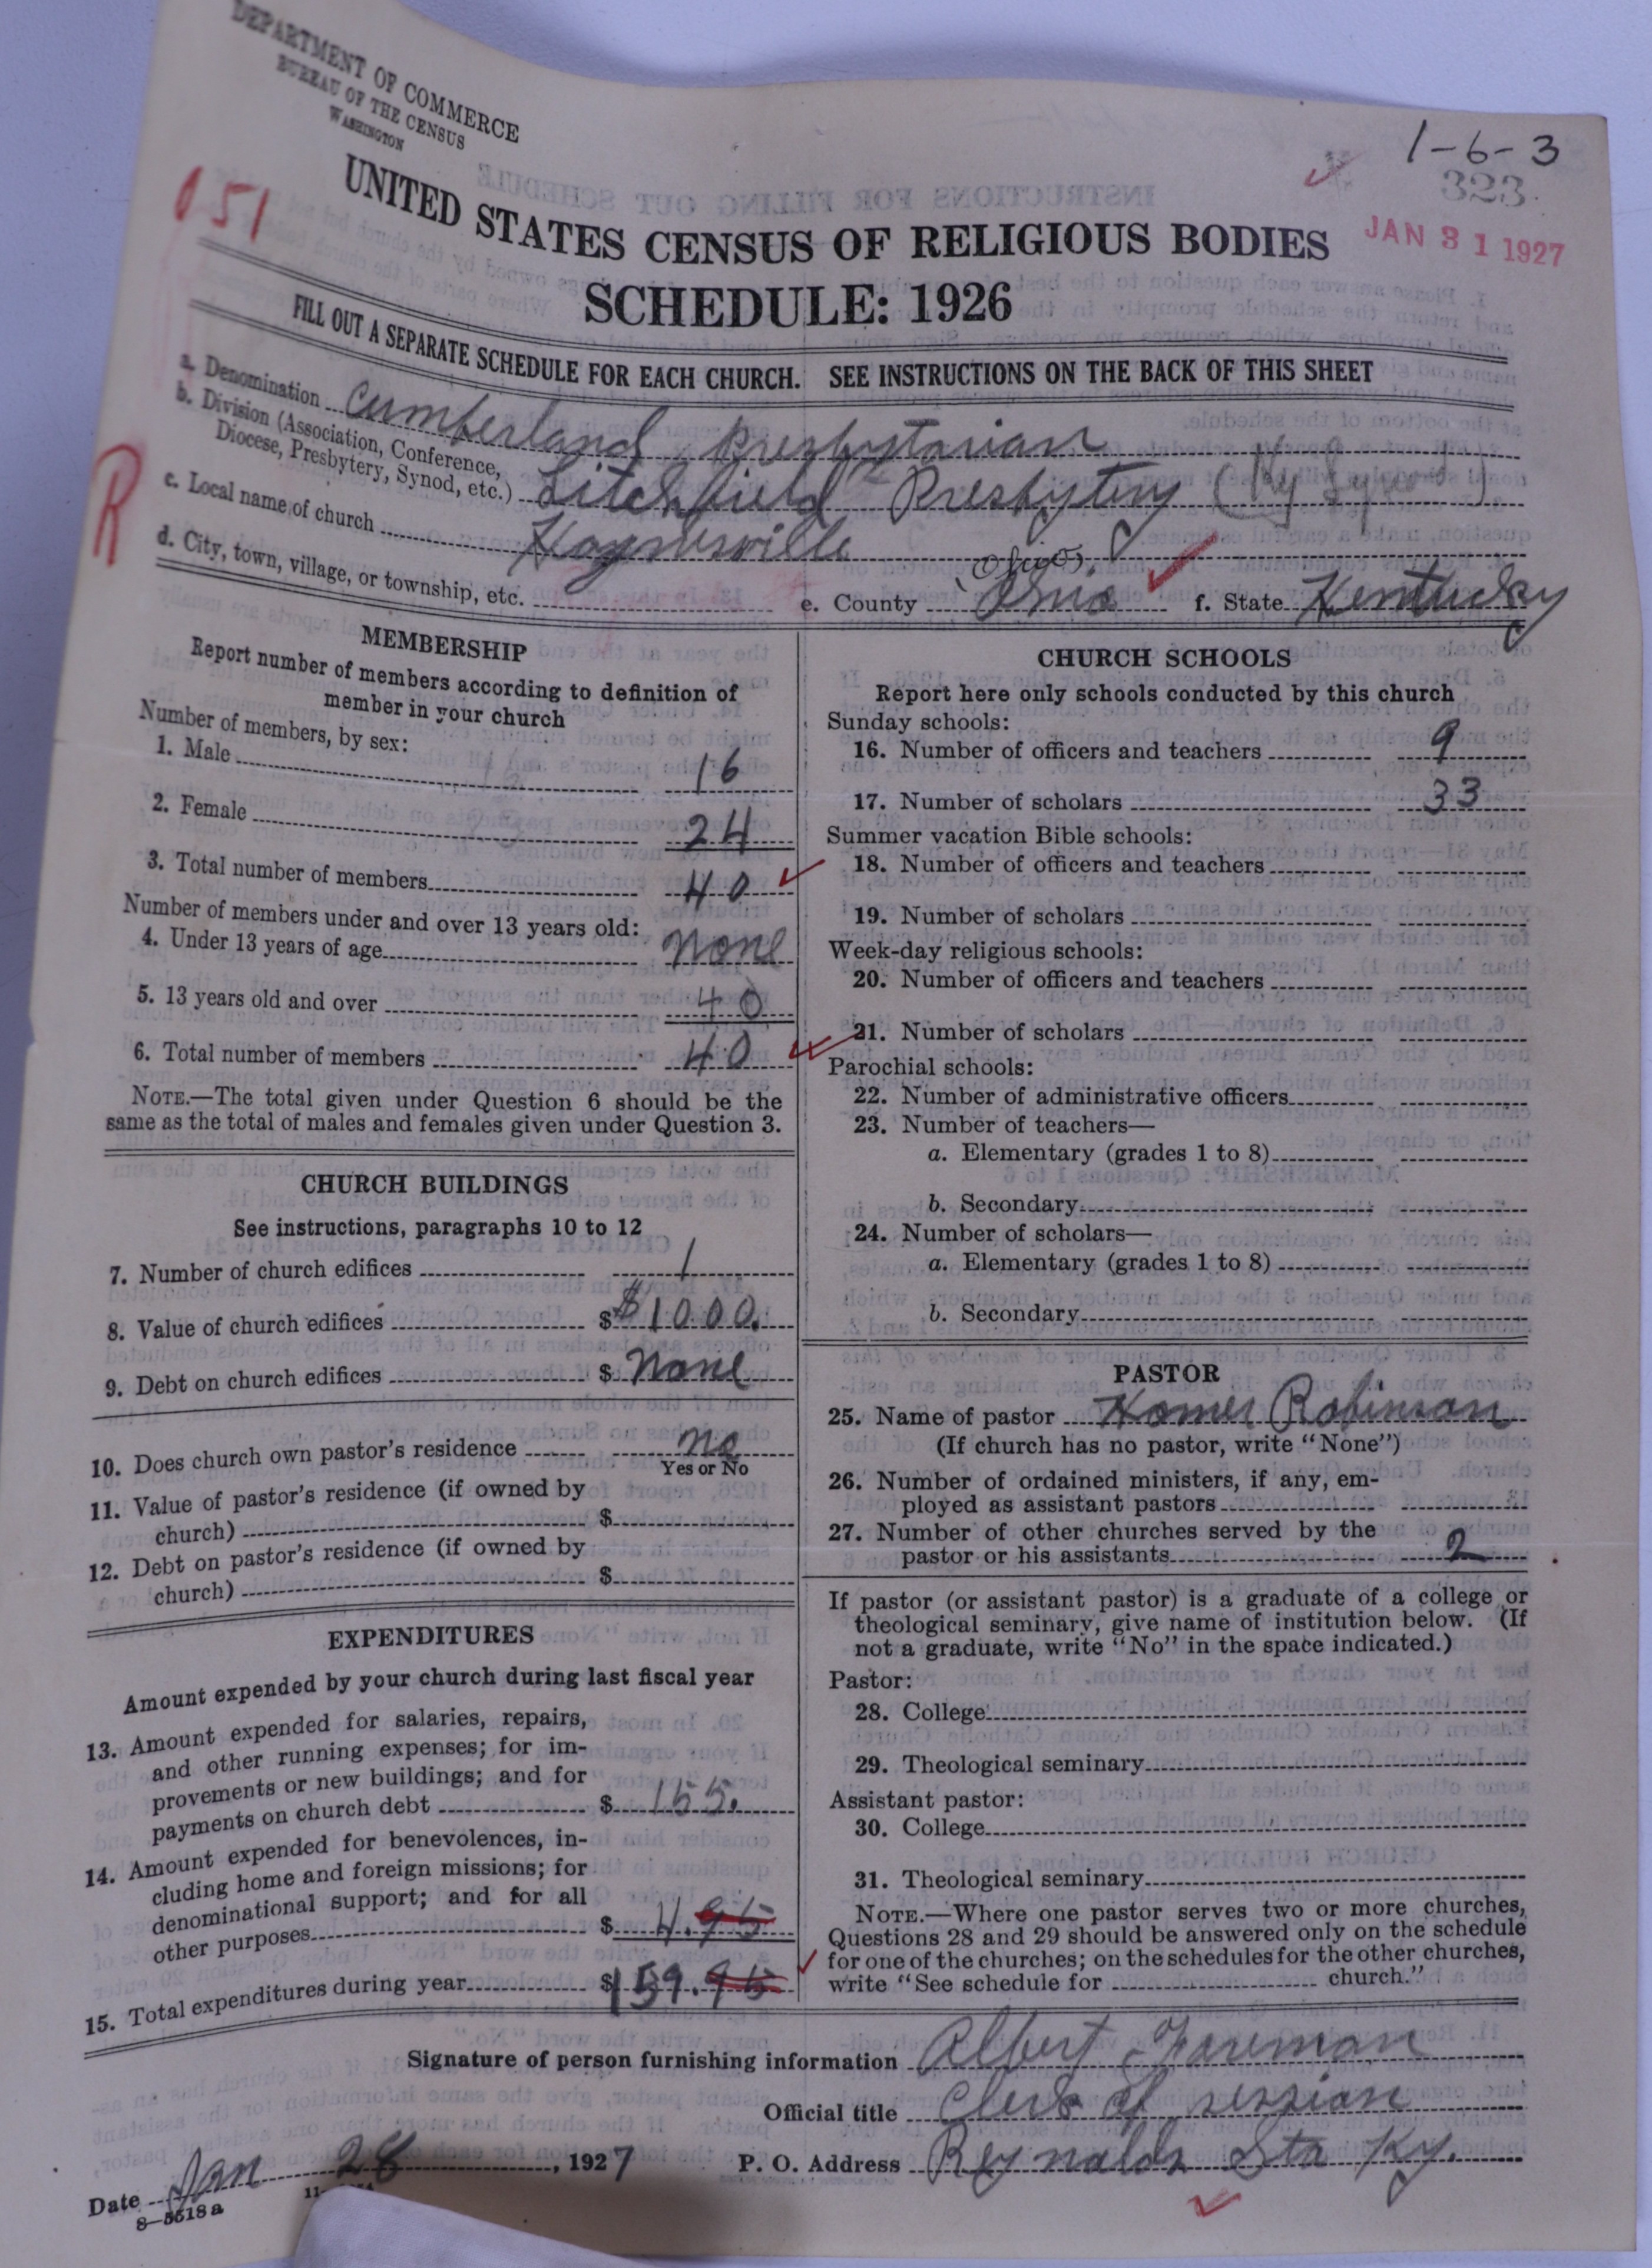 DEPARTMENT OF COMMERCE
BUREAU OF THE CENSUS
WASHINGTON
1-6-3
323
051
UNITED STATES CENSUS OF RELIGIOUS BODIES
JAN 31 1927
SCHEDULE: 1926
FILL OUT A SEPARATE SCHEDULE FOR EACH CHURCH. SEE INSTRUCTIONS ON THE BACK OF THIS SHEET
a. Denomination Cumberland Presbytarian
b. Division (Association, Conference,
Diocese, Presbytery, Synod, etc.) Litchfield Presbytery (Ky Synod)
R
c. Local name of church Haynesville
Ohio
d. City, town, village, or township, etc. e. County Ohio f. State Kentucky
MEMBERSHIP
Report number of members according to definition of
member in your church
Number of members, by sex:
1. Male 16
2. Female 24
3. Total number of members 40
Number of members under and over 13 years old:
4. Under 13 years of age none
5. 13 years old and over 40
6. Total number of members 40
NOTE.—The total given under Question 6 should be the
same as the total of males and females given under Question 3.
CHURCH BUILDINGS
See instructions, paragraphs 10 to 12
7. Number of church edifices 1
8. Value of church edifices $ $1000.
9. Debt on church edifices $ none
10. Does church own pastor's residence no
Yes or No
11. Value of pastor's residence (if owned by
church) $
12. Debt on pastor's residence (if owned by
church) $
EXPENDITURES
Amount expended by your church during last fiscal year
13. Amount expended for salaries, repairs,
and other running expenses; for im-
provements or new buildings; and for
payments on church debt $ 155.
14. Amount expended for benevolences, in-
cluding home and foreign missions; for
denominational support; and for all
other purposes $ 4.95
15. Total expenditures during year $159.95
CHURCH SCHOOLS
Report here only schools conducted by this church
Sunday schools:
16. Number of officers and teachers 9
17. Number of scholars 33
Summer vacation Bible schools:
18. Number of officers and teachers
19. Number of scholars
Week-day religious schools:
20. Number of officers and teachers
21. Number of scholars
Parochial schools:
22. Number of administrative officers
23. Number of teachers—
a. Elementary (grades 1 to 8)
b. Secondary
24. Number of scholars—
a. Elementary (grades 1 to 8)
b. Secondary
PASTOR
25. Name of pastor Homer Robinson
(If church has no pastor, write "None")
26. Number of ordained ministers, if any, em-
ployed as assistant pastors
27. Number of other churches served by the
pastor or his assistants 2
If pastor (or assistant pastor) is a graduate of a college or
theological seminary, give name of institution below. (If
not a graduate, write "No" in the space indicated.)
Pastor:
28. College
29. Theological seminary
Assistant pastor:
30. College
31. Theological seminary
NOTE.—Where one pastor serves two or more churches,
Questions 28 and 29 should be answered only on the schedule
for one of the churches; on the schedules for the other churches,
write "See schedule for church."
Signature of person furnishing information Albert Foreman
Official title Clerk of session
Date Jan 28, 1927 P. O. Address Reynolds Sta Ky.
8-5518a